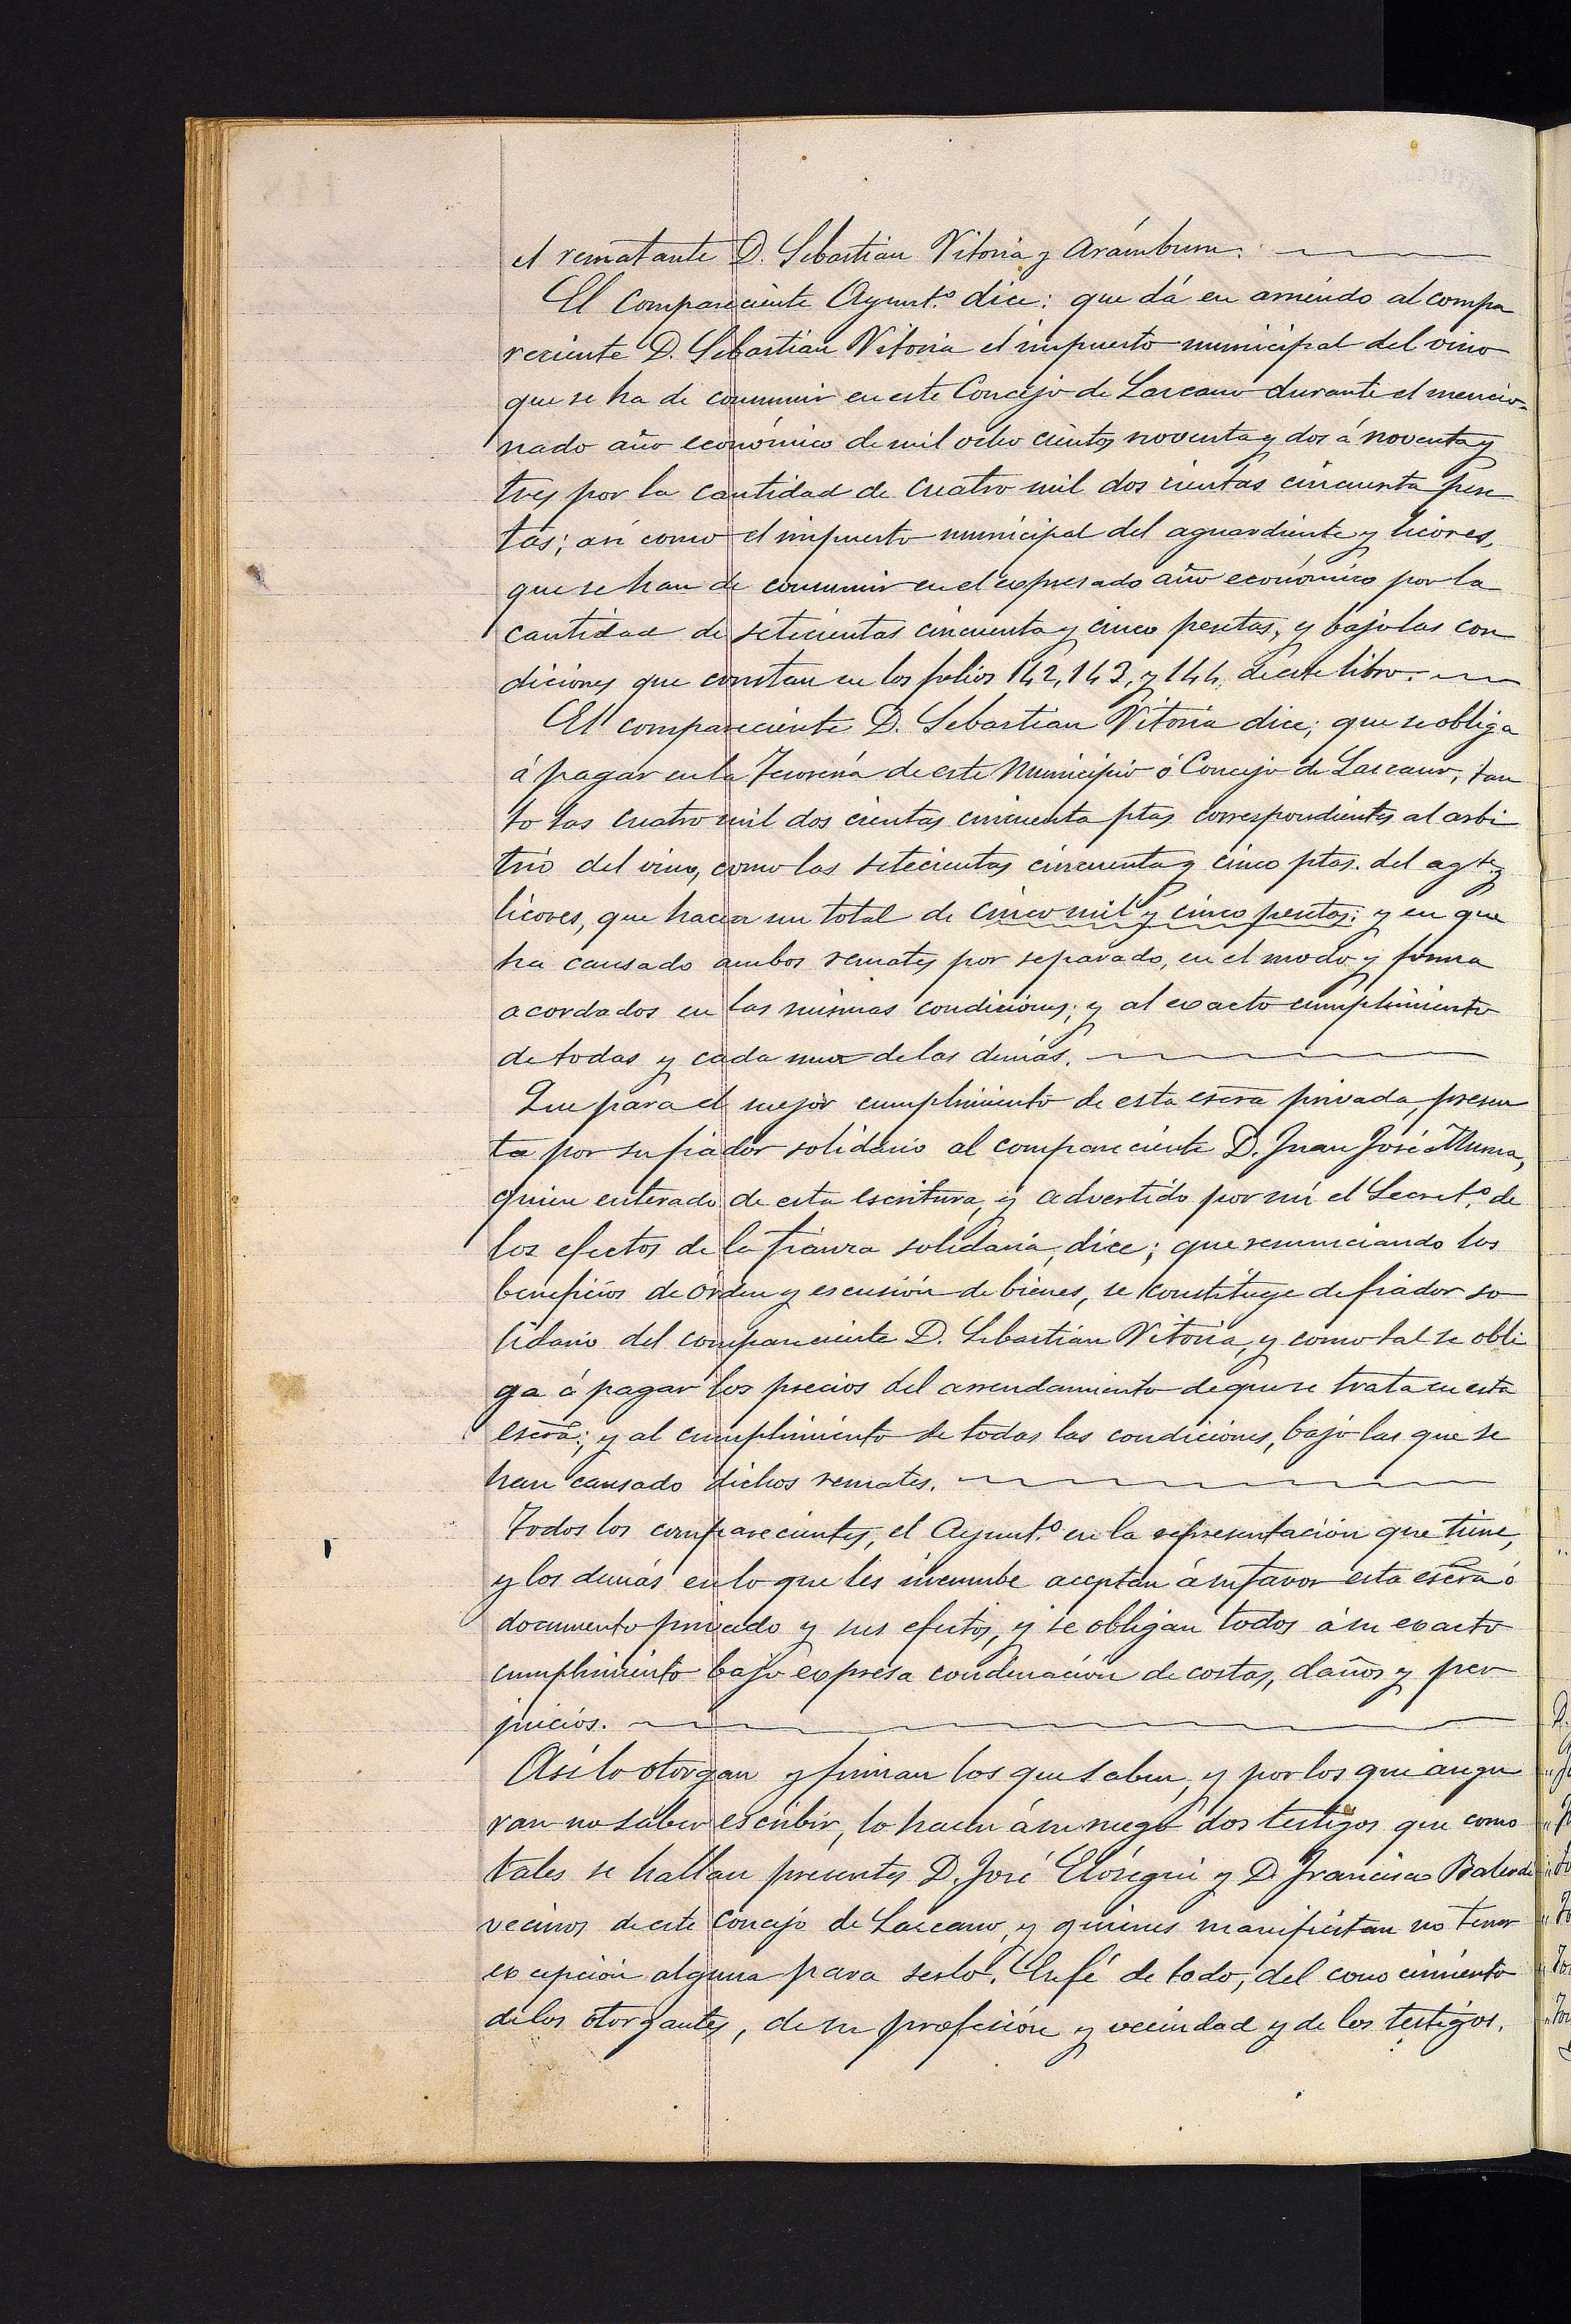 el rematante D. Sebastian Vitoria y Arámburu.
El compareciente Ayunt.º dice: que dá en arriendo al compa
reciente D. Sebastian Vitoria el impuesto municipal del vino
que se ha de consumir en este Concejo de Lazcano durante el mencio-
nado año económico de mil ocho cientos noventa y dos á noventa y
tres por la cantidad de cuatro mil dos cientas cincuenta pese
tas; asi como el impuesto municipal del aguardiente y licores,
que se han de consumir en el expresado año económico por la
cantidad de setecientas cincuenta y cinco pesetas, y bajo las con
diciones que constan en los folios 142, 143, y 144, de este libro.
El compareciente D. Sebastian Vitoria dice; que se obliga
á pagar en la Tesorería de este Municipio ó Concejo de Lazcano, tan
to las cuatro mil dos cientas cincuenta ptas. correspondientes al arbi
trio del vino, como las setecientas cincuenta y cinco ptas. del agte. y
licores, que hacen un total de cinco mil y cinco pesetas; y en que
ha causado ambos remates por separado, en el modo y forma
acordados en las mismas condiciones; y al exacto cumplimiento
de todas y cada una de las demás.
Que para el mejor cumplimiento de esta escra privada, presen
ta por su fiador solidario al compareciente D. Juan José
quien enterado de esta escritura, y advertido por mí el Secret.º de
los efectos de la fianza solidaria, dice; que renunciando los
beneficios de órden y escusión de bienes, se constituye de fiador so
lidario del compareciente D. Sebastian Vitoria, y como tal se obli
ga á pagar los precios del arrendamiento de que se trata en esta
escra; y al cumplimiento de todas las condiciones, bajo las que se
han causado dichos remates.
Todos los comparecientes, el Ayunt.º en la representación que tiene,
y los demás en lo que les incumbe aceptan á su favor esta escra ó
documento privado y sus efectos, y se obligan todos á su exacto
cumplimiento bajo expresa condenación de costas, daños y per
juicios.
Asi lo otorgan y firman los que saben, y por los que asegu
ran no saber escribir, lo hacen á su ruego dos testigos que como
tales se hallan presentes D. José Elósegui y D. Francisco
vecinos de este Concejo de Lazcano, y quienes manifiestan no tener
excepción alguna para serlo. En fé de todo, del conocimiento
de los otorgantes, de su profesión y vecindad y de los testigos.